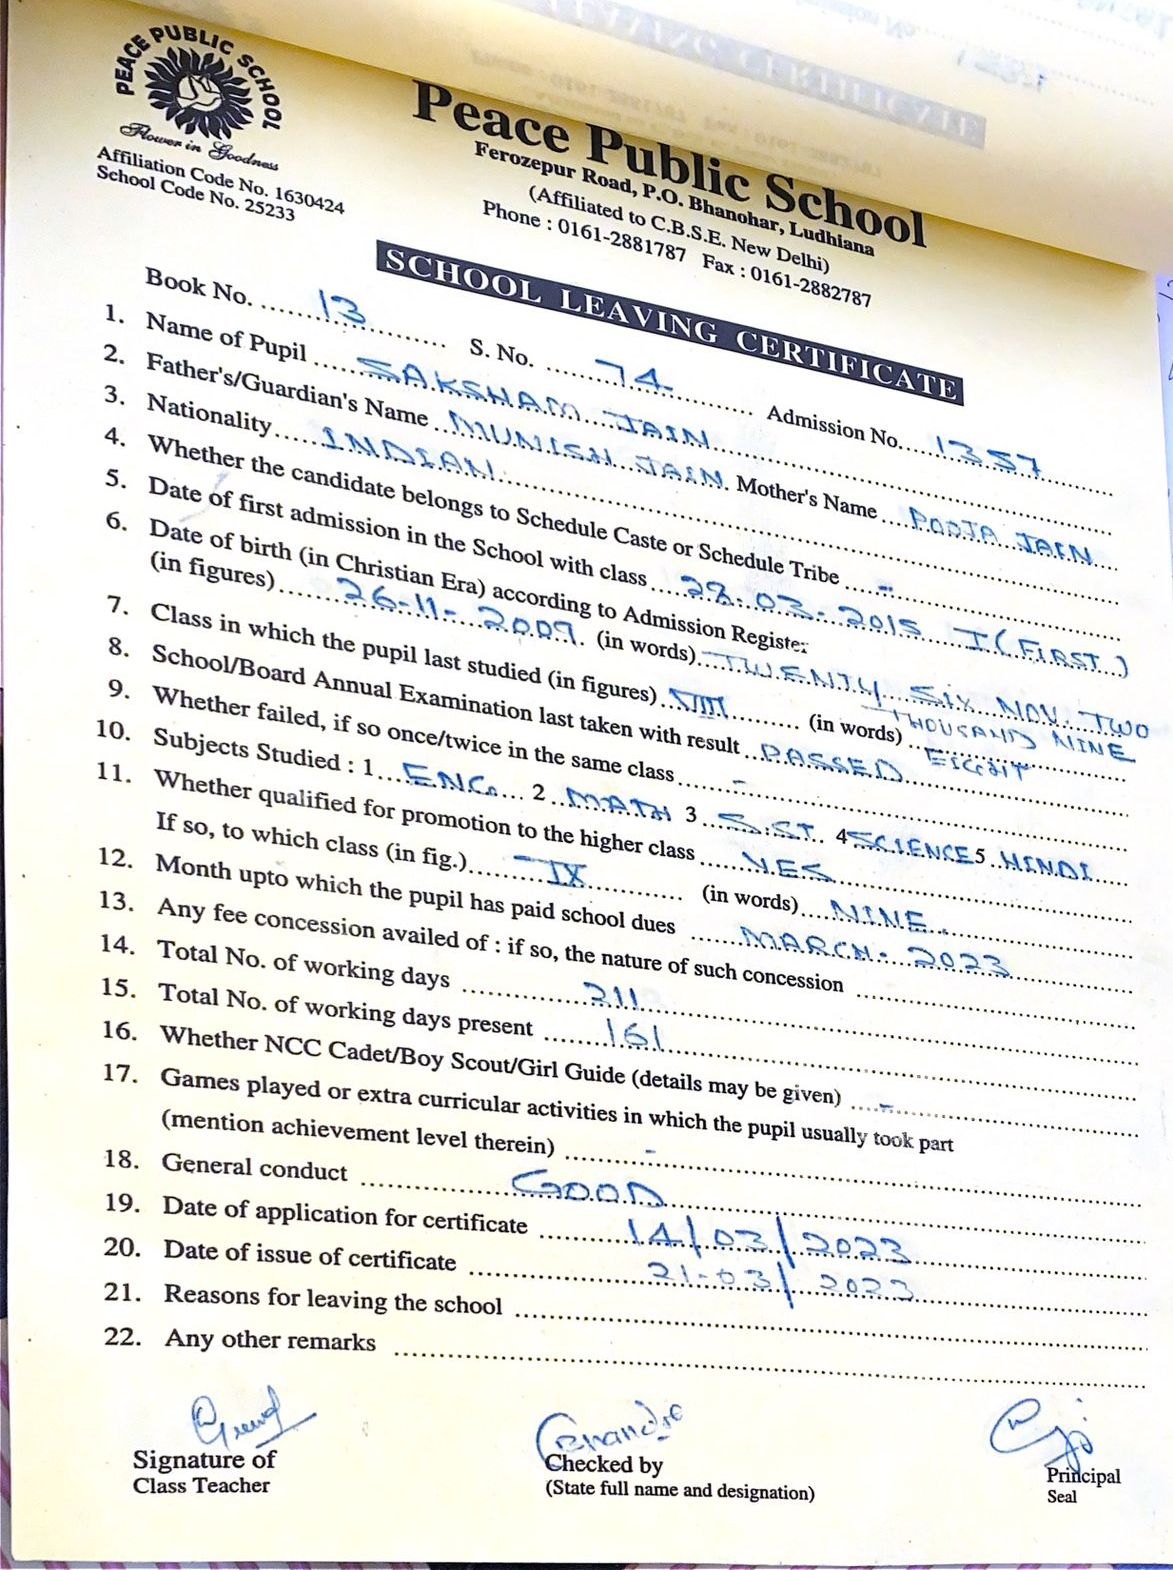 PEACE PUBLIC SCHOOL
Flower in Goodness
Affiliation Code No. 1630424
School Code No. 25233
Peace Public School
Ferozepur Road, P.O. Bhanohar, Ludhiana
(Affiliated to C.B.S.E. New Delhi)
Phone : 0161-2881787 Fax : 0161-2882787
SCHOOL LEAVING CERTIFICATE
Book No. 13 S. No. 74 Admission No. 1357
1. Name of Pupil SAKSHAM JAIN
2. Father's/Guardian's Name MUNISH JAIN Mother's Name POOJA JAIN
3. Nationality INDIAN
4. Whether the candidate belongs to Schedule Caste or Schedule Tribe -
5. Date of first admission in the School with class 28-03-2015 I (FIRST)
6. Date of birth (in Christian Era) according to Admission Register
(in figures) 26-11-2009. (in words) TWENTY SIX NOV. TWO
THOUSAND NINE
7. Class in which the pupil last studied (in figures) VIII (in words) EIGHT
8. School/Board Annual Examination last taken with result PASSED
9. Whether failed, if so once/twice in the same class -
10. Subjects Studied : 1 ENG. 2 MATH 3 S.ST. 4 SCIENCE 5 HINDI
11. Whether qualified for promotion to the higher class YES
If so, to which class (in fig.) IX (in words) NINE
12. Month upto which the pupil has paid school dues MARCH-2023
13. Any fee concession availed of : if so, the nature of such concession
14. Total No. of working days 211
15. Total No. of working days present 161
16. Whether NCC Cadet/Boy Scout/Girl Guide (details may be given) -
17. Games played or extra curricular activities in which the pupil usually took part
(mention achievement level therein) -
18. General conduct GOOD
19. Date of application for certificate 14/03/2023
20. Date of issue of certificate 21-03/2023
21. Reasons for leaving the school
22. Any other remarks
Signature of
Class Teacher
Checked by
(State full name and designation)
Principal
Seal